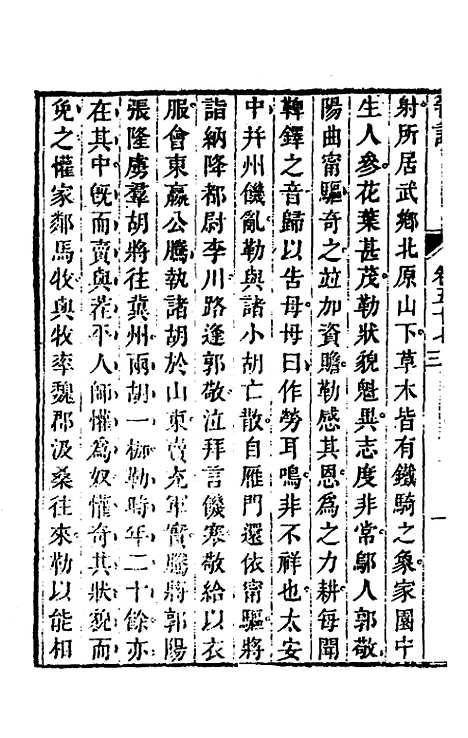 晉記 卷五十七 三
射所居武鄉北原山下草木皆有鐵騎之象家園中
生人參花葉甚茂勒狀貌魁異志度非常鄔人郭敬
陽曲甯驅奇之並加資贍勒感其恩為之力耕每聞
鞞鐸之音歸以告母母曰作勞耳鳴非不祥也太安
中并州饑亂勒與諸小胡亡散自雁門還依甯驅將
詣納降都尉李川路逢郭敬泣拜言饑寒敬給以衣
服會東嬴公騰執諸胡於山東賣充軍實騰將郭陽
張隆虜羣胡將往冀州兩胡一枷勒時年二十餘亦
在其中旣而賣與茬平人師懽為奴懽奇其狀貌而
免之懽家鄰馬牧與牧率魏郡汲桑往來勒以能相